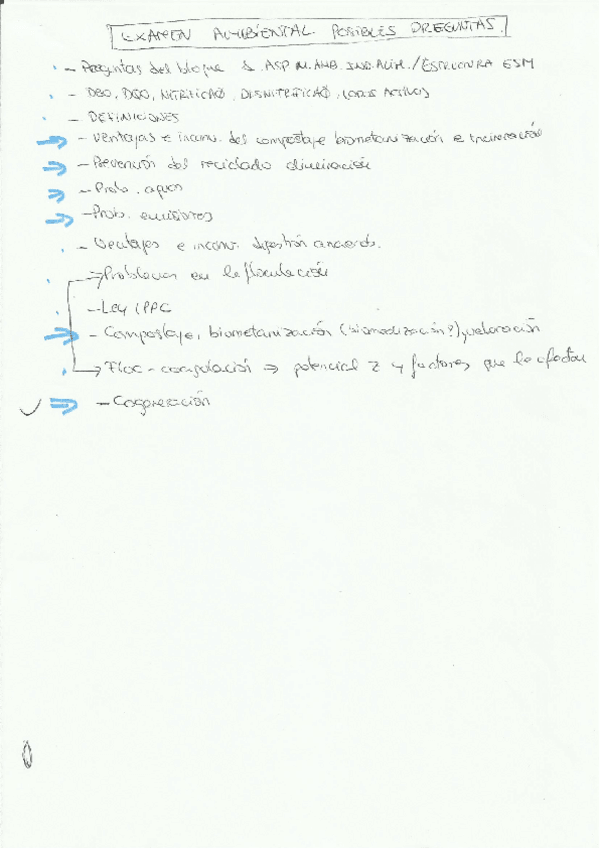 EXAMEN AMBIENTAL. POSIBLES PREGUNTAS.
- Preguntas del bloque 1. ASP M. AMB. IND. ALIM. / ESTRUCTURA ESM
- DBO, DQO, NITRIFICAÖ, DESNITRIFICAÖ, LODOS ACTIVOS
- DEFINICIONES
- Ventajas e inconv. del compostaje biometanización e incineración
- Prevención del reciclado
- Prob. aguas
- Prob. emisiones
- Ventajas e inconv. digestión anaerob.
Problemas en la floculación
- Ley IPPC
- Compostaje, biometanización ( ?) y valoración
Floc-coagulación ⇒ potencial z y factores que lo afectan
- Cogeneración